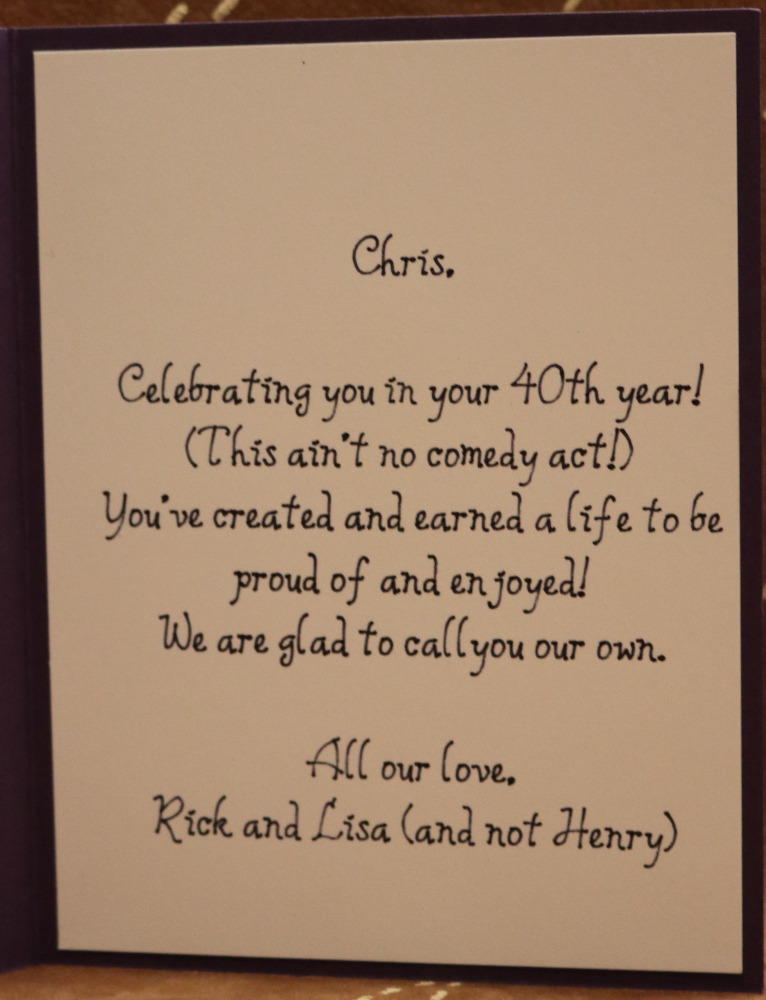 Chris.
Celebrating you in your 40th year!
(This ain't no comedy act!)
You've created and earned a life to be
proud of and enjoyed!
We are glad to call you our own.
All our love.
Rick and Lisa (and not Henry)